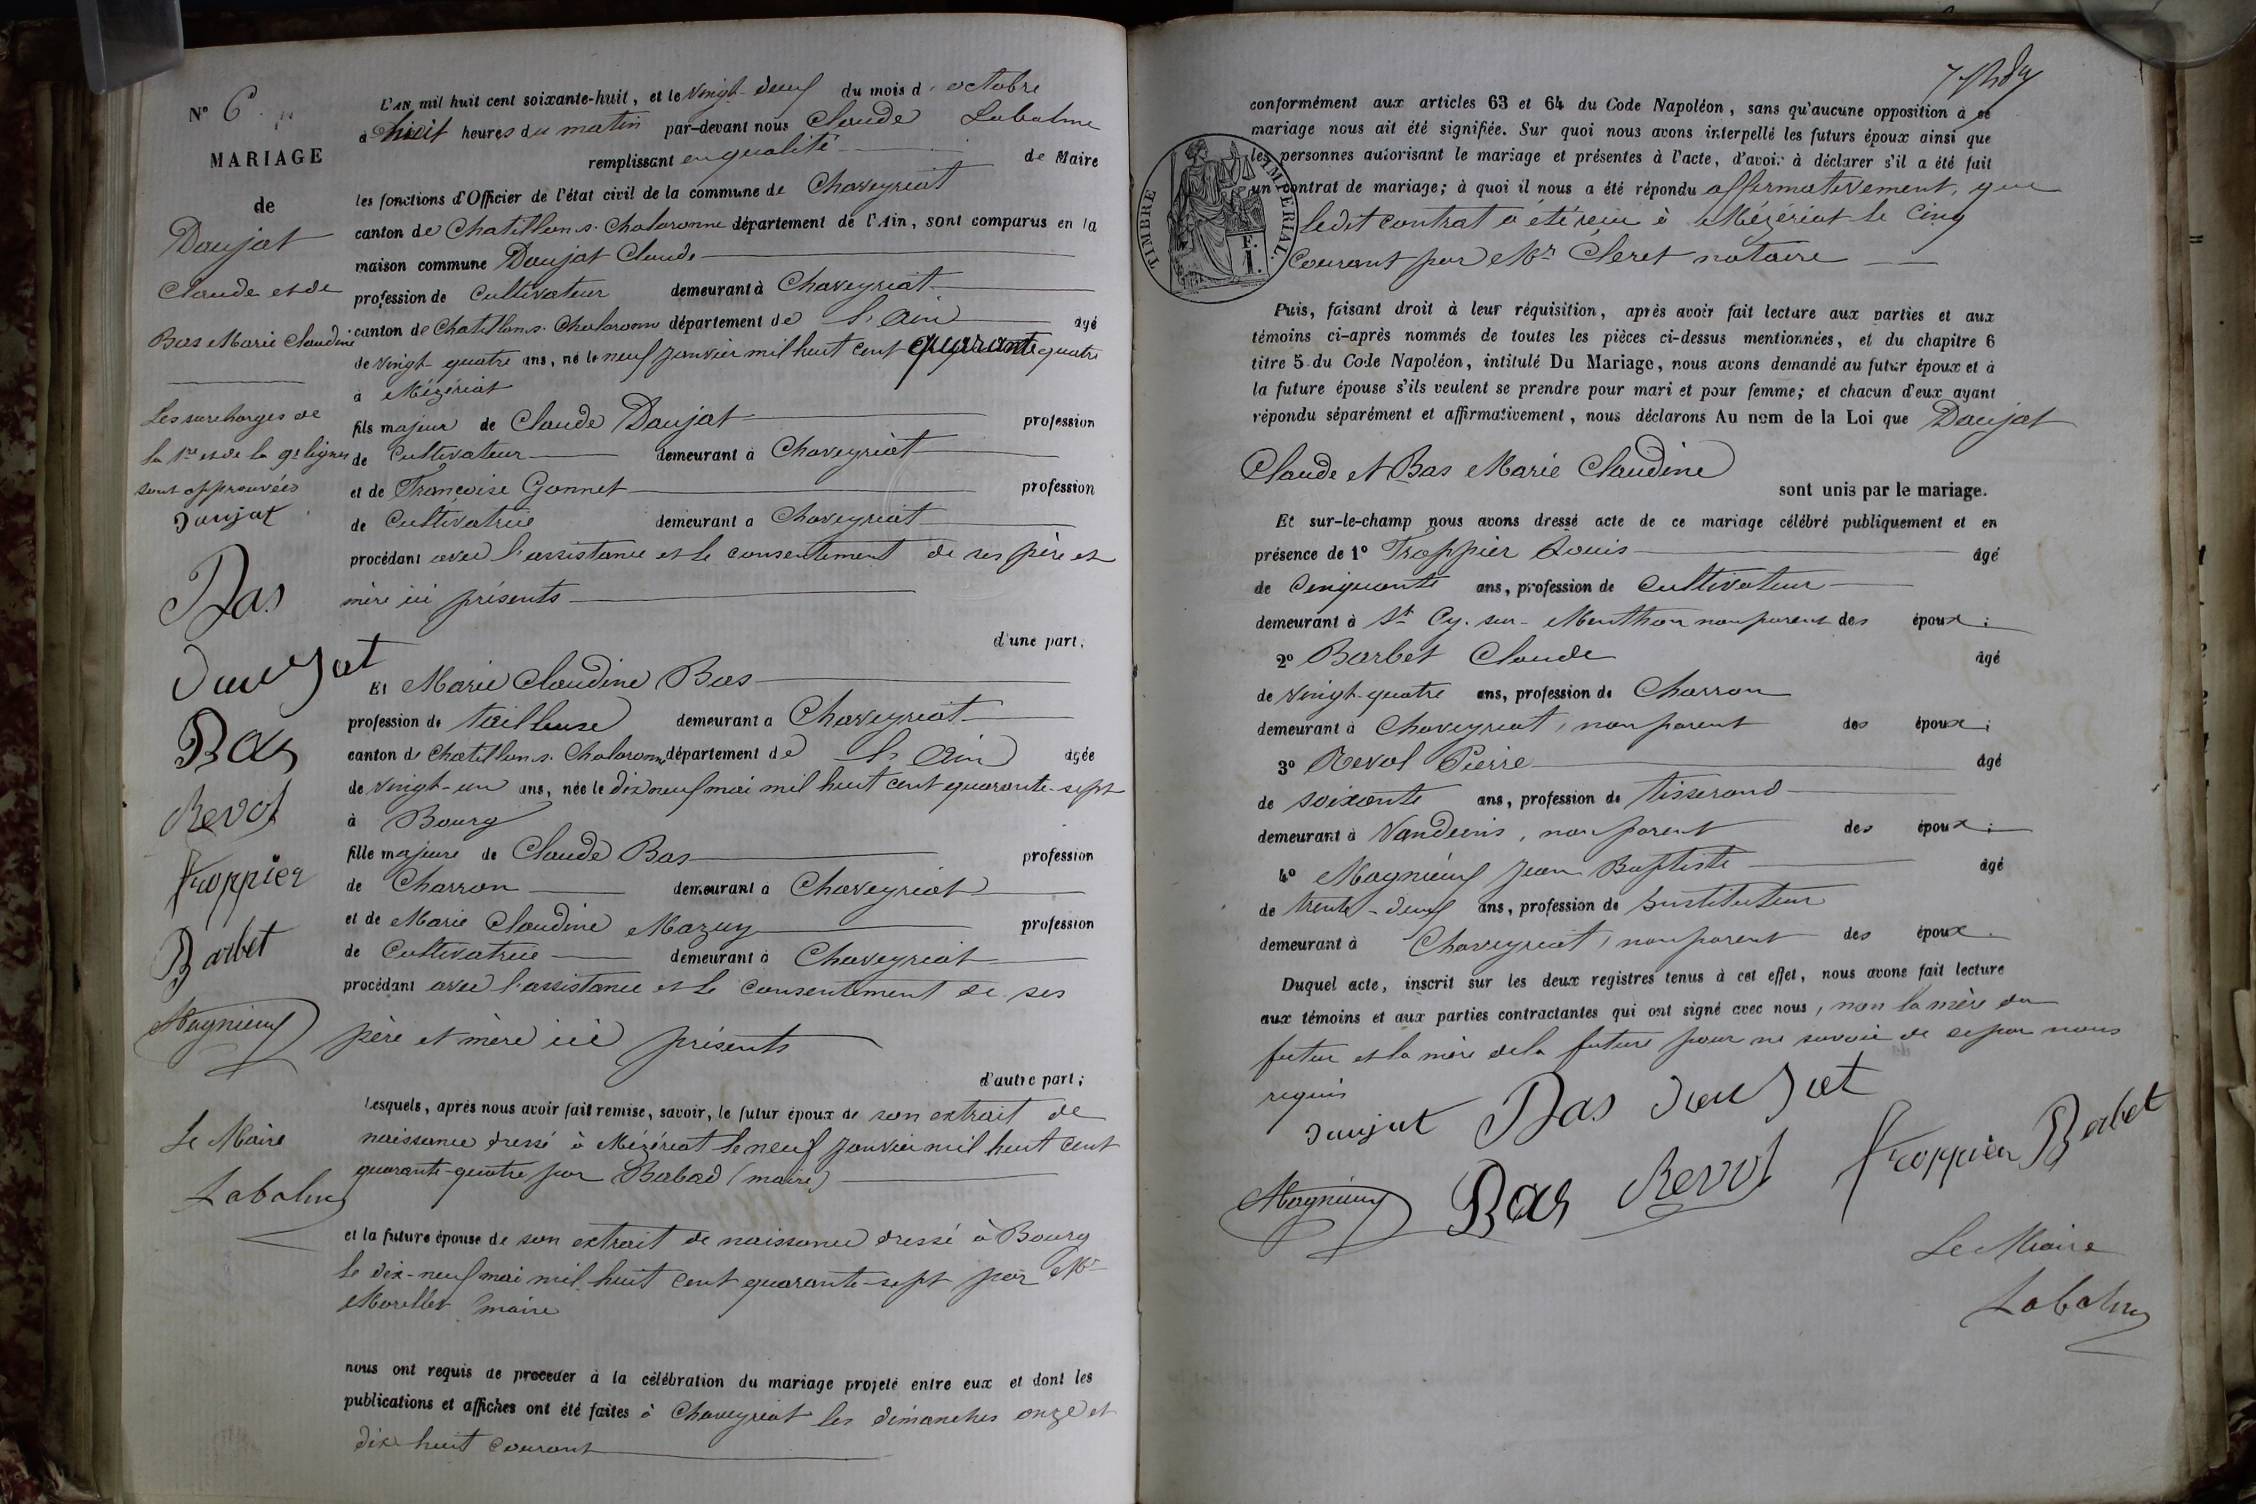 N° 6
MARIAGE
de
Daujat
Claude et de
Bas Marie Claudine
Les surcharges de
la 1re et de la 9e lignes
sont approuvées
Daujat
Bas
Daujat
Bas
Revol
Froppier
Barbet
Magnieux
Le Maire
Labalme
L'AN mil huit cent soixante-huit, et le vingt-deux du mois d'octobre
à huit heures du matin par-devant nous Claude Labalme
remplissant en qualité de Maire
les fonctions d'Officier de l'état civil de la commune de Chaveyriat
canton de Chatillon s. Chalaronne département de l'Ain, sont comparus en la
maison commune Daujat Claude
profession de Cultivateur demeurant à Chaveyriat
canton de Chatillon s. Chalaronne département de l'Ain âgé
de vingt-quatre ans, né le neuf janvier mil huit cent quarante quatre
à Mézériat
fils majeur de Claude Daujat profession
de Cultivateur demeurant à Chaveyriat
et de Françoise Gonnet profession
de Cultivatrice demeurant à Chaveyriat
procédant avec l'assistance et le consentement de ses père et
mère ici présents
d'une part;
Et Marie Claudine Bas
profession de tailleuse demeurant à Chaveyriat
canton de Chatillon s. Chalaronne département de l'Ain âgée
de vingt-un ans, née le dix neuf mai mil huit cent quarante-sept
à Bourg
fille majeure de Claude Bas profession
de Charron demeurant à Chaveyriat
et de Marie Claudine Mazuy profession
de Cultivatrice demeurant à Chaveyriat
procédant avec l'assistance et le consentement de ses
père et mère ici présents
d'autre part;
Lesquels, après nous avoir fait remise, savoir, le futur époux de son extrait de
naissance dressé à Mézériat le neuf janvier mil huit cent
quarante-quatre par Babad (maire)
et la future épouse de son extrait de naissance dressé à Bourg
le dix-neuf mai mil huit cent quarante-sept par Mr
Morellet maire
nous ont requis de procéder à la célébration du mariage projeté entre eux et dont les
publications et affiches ont été faites à Chaveyriat les dimanches onze et
dix huit courant
conformément aux articles 63 et 64 du Code Napoléon, sans qu'aucune opposition à ce
mariage nous ait été signifiée. Sur quoi nous avons interpellé les futurs époux ainsi que
les personnes autorisant le mariage et présentes à l'acte, d'avoir à déclarer s'il a été fait
un contrat de mariage; à quoi il nous a été répondu affirmativement, que
ledit contrat a été reçu à Mézériat le cinq
courant par Mr Cleret notaire
TIMBRE IMPÉRIAL.
F.
1.
Puis, faisant droit à leur réquisition, après avoir fait lecture aux parties et aux
témoins ci-après nommés de toutes les pièces ci-dessus mentionnées, et du chapitre 6
titre 5 du Code Napoléon, intitulé Du Mariage, nous avons demandé au futur époux et à
la future épouse s'ils veulent se prendre pour mari et pour femme; et chacun d'eux ayant
répondu séparément et affirmativement, nous déclarons Au nom de la Loi que Daujat
Claude et Bas Marie Claudine
sont unis par le mariage.
Et sur-le-champ nous avons dressé acte de ce mariage célébré publiquement et en
présence de 1° Froppier Louis âgé
de Cinquante ans, profession de Cultivateur
demeurant à St Cy. sur-Menthon non parent des époux;
2° Barbet Claude âgé
de vingt-quatre ans, profession de Charron
demeurant à Chaveyriat, non parent des époux;
3° Revol Pierre âgé
de soixante ans, profession de tisserand
demeurant à Vandeins, non parent des époux;
4° Magnieux Jean Baptiste âgé
de trente-deux ans, profession de Instituteur
demeurant à Chaveyriat, non parent des époux.
Duquel acte, inscrit sur les deux registres tenus à cet effet, nous avons fait lecture
aux témoins et aux parties contractantes qui ont signé avec nous, non la mère du
futur et la mère de la future pour ne savoir de ce par nous
requis
Daujat Bas Daujat
Froppier Barbet
Magnieux Bas Revol
Le Maire
Labalme